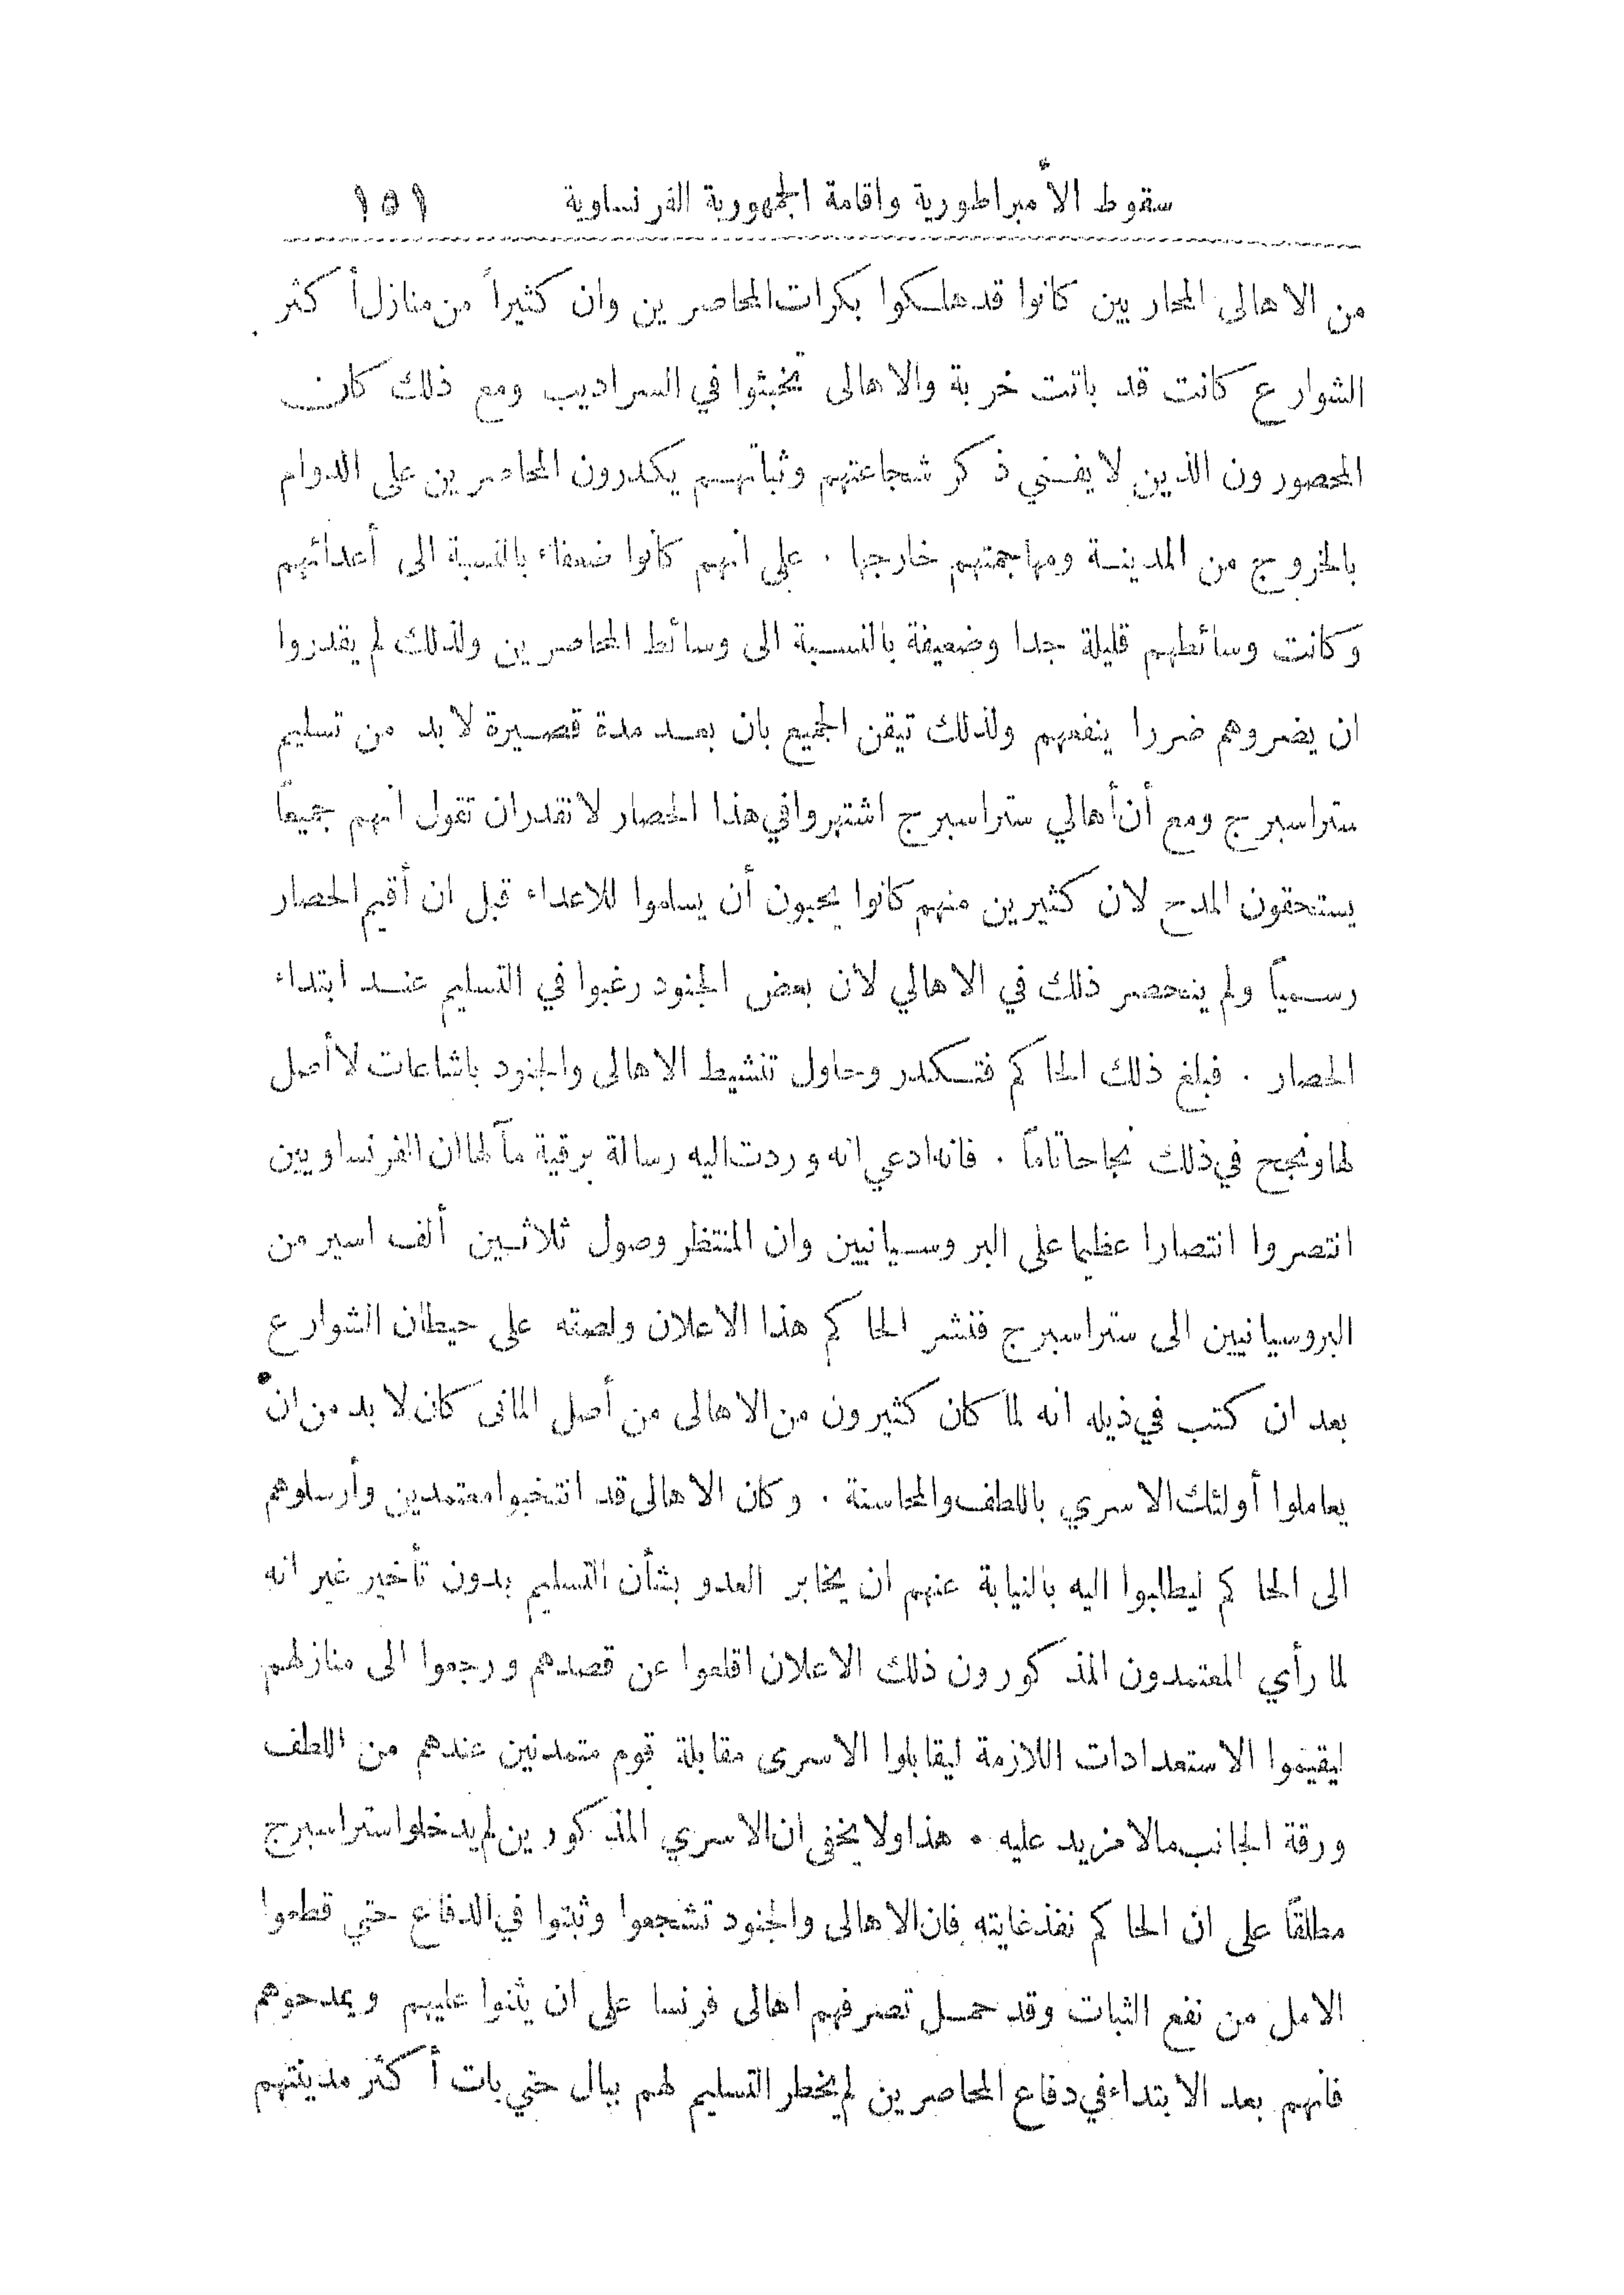 سقوط الأمبراطورية واقامة الجمهورية الفرنساوية ١٥١
من الاهالى المحاربين كانوا قد هلكوا بكرات المحاصرين وان كثيراً من منازل أكثر
الشوارع كانت قد باتت خربة والاهالى تخبئوا في السراديب ومع ذلك كان
المحصورون الذين لا يفني ذكر شجاعتهم وثباتهم يكدرون المحاصرين على الدوام
بالخروج من المدينة ومهاجمتهم خارجها . على انهم كانوا ضعفاء بالنسبة الى أعدائهم
وكانت وسائطهم قليلة جدا وضعيفة بالنسبة الى وسائط المحاصرين ولذلك لم يقدروا
ان يضروهم ضررا ينفعهم ولذلك تيقن الجميع بان بعد مدة قصيرة لا بد من تسليم
ستراسبرج ومع أن أهالي ستراسبرج اشتهروا في هذا الحصار لا نقدر ان نقول انهم جميعاً
يستحقون المدح لان كثيرين منهم كانوا يحبون أن يسلموا للاعداء قبل ان أقيم الحصار
رسمياً ولم ينحصر ذلك في الاهالي لأن بعض الجنود رغبوا في التسليم عند ابتداء
الحصار . فبلغ ذلك الحاكم فتكدر وحاول تنشيط الاهالى والجنود باشاعات لا أصل
لها ونجح في ذلك نجاحا تاماً . فانه ادعي انه وردت اليه رسالة برقية مآلها ان الفرنساويين
انتصروا انتصارا عظيما على البروسيانيين وان المنتظر وصول ثلاثين ألف اسير من
البروسيانيين الى ستراسبرج فنشر الحاكم هذا الاعلان ولصقه على حيطان الشوارع
بعد ان كتب في ذيله انه لما كان كثيرون من الاهالى من أصل المانى كان لا بد من ان
يعاملوا أولئك الاسري باللطف والمحاسنة . وكان الاهالى قد انتخبوا معتمدين وأرسلوهم
الى الحاكم ليطلبوا اليه بالنيابة عنهم ان يخابر العدو بشأن التسليم بدون تأخير غير انه
لما رأي المعتمدون المذكورون ذلك الاعلان اقلعوا عن قصدهم ورجعوا الى منازلهم
ليقيموا الاستعدادات اللازمة ليقابلوا الاسرى مقابلة قوم متمدنين عندهم من اللطف
ورقة الجانب مالا مزيد عليه . هذا ولا يخفى ان الاسري المذكورين لم يدخلوا ستراسبرج
مطلقاً على ان الحاكم نفذ غايته فان الاهالى والجنود تشجعوا وثبتوا في الدفاع حتي قطعوا
الامل من نفع الثبات وقد حمل تصرفهم اهالى فرنسا على ان يثنوا عليهم ويمدحوهم
فانهم بعد الابتداء في دفاع المحاصرين لم يخطر التسليم لهم ببال حتي بات أكثر مدينتهم